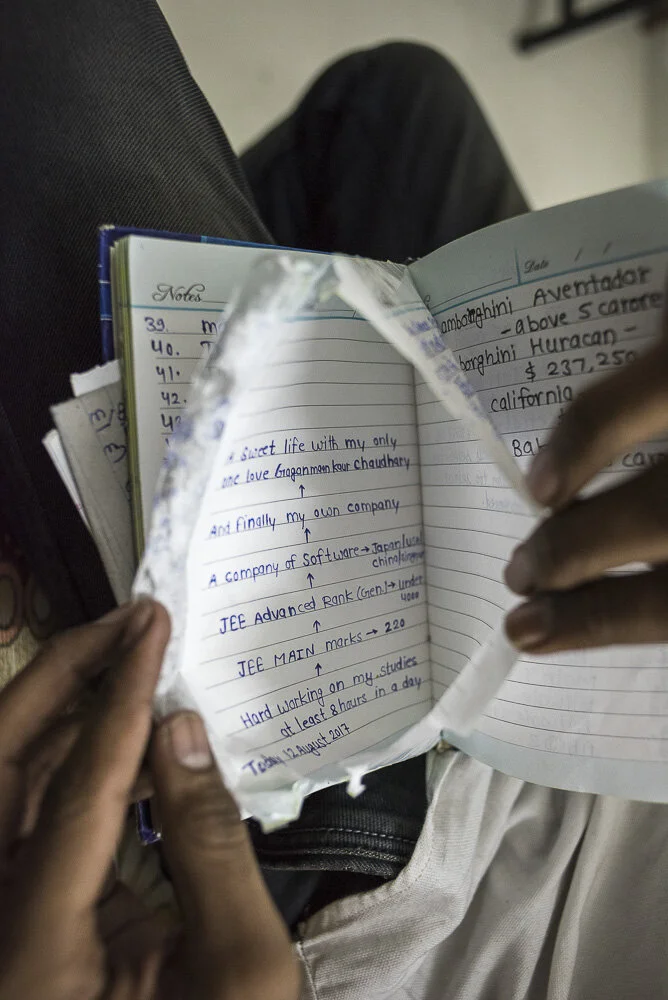 Notes
39. m
40.
41.
42.
A sweet life with my only
one love Gaganman kour chaudhary
↑
And finally my own company
↑
A company of Software → Japan/
↑
JEE Advanced Rank (Gen) → under
4000
↑
JEE MAIN marks → 220
↑
Hard working on my studies
at least 8 hours in a day
Today 12 August 2017
Date / /
amborghini Aventador
- above 5 carore
borghini Huracan -
$ 237,250
california